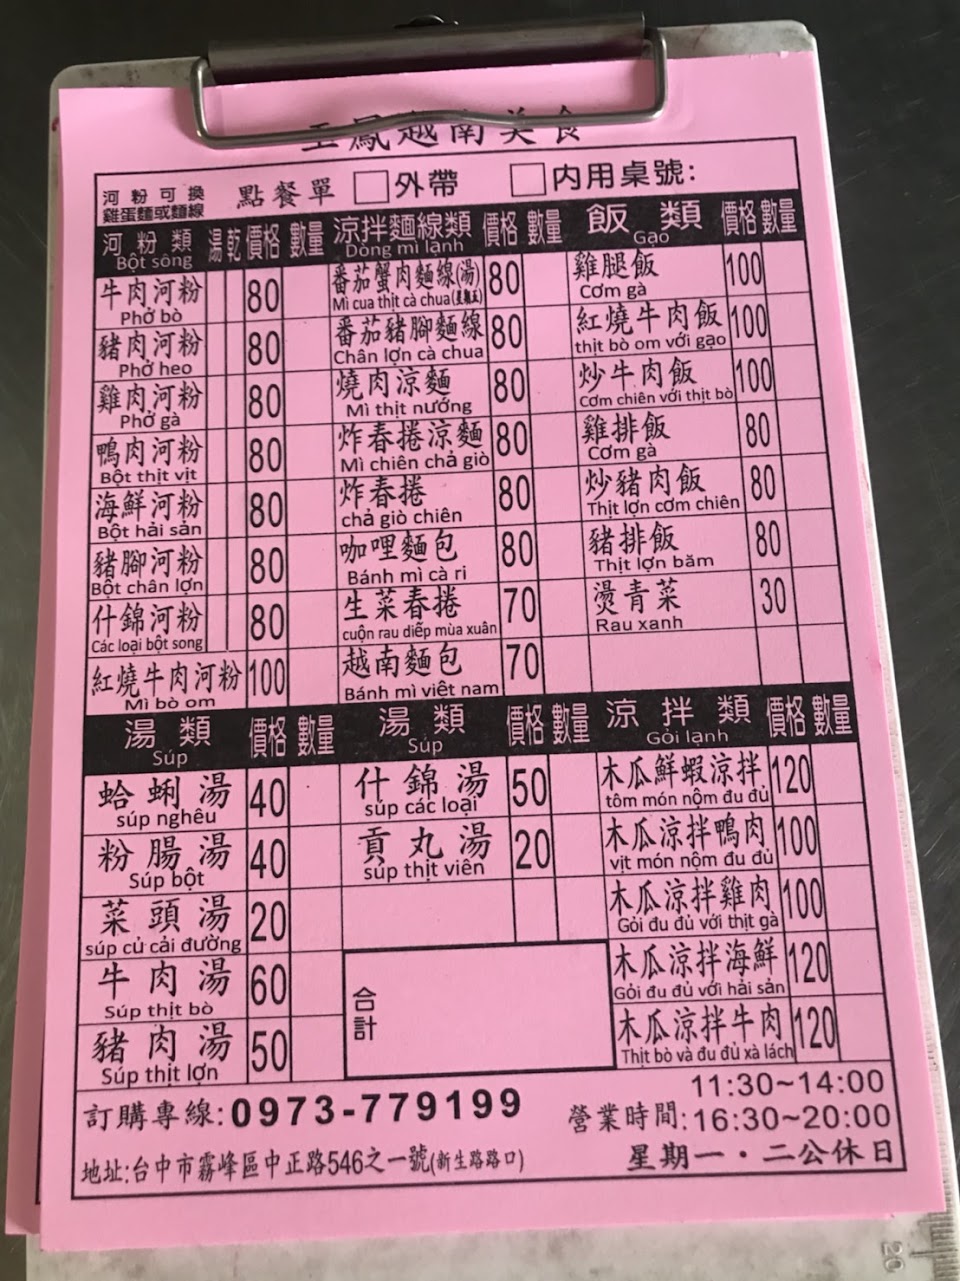 鳳越南美食
河粉可換
雞蛋麵或麵線
點餐單 外帶 內用桌號:
河粉類 湯 乾 價格 數量
Bột sông
牛肉河粉 80
Phở bò
豬肉河粉 80
Phở heo
雞肉河粉 80
Phở gà
鴨肉河粉 80
Bột thịt vịt
海鮮河粉 80
Bột hải sản
豬腳河粉 80
Bột chân lợn
什錦河粉 80
Các loại bột song
紅燒牛肉河粉 100
Mì bò om
涼拌麵線類 價格 數量
Dòng mì lạnh
番茄蟹肉麵線(湯) 80
Mì cua thịt cà chua
番茄豬腳麵線 80
Chân lợn cà chua
燒肉涼麵 80
Mì thịt nướng
炸春捲涼麵 80
Mì chiên chả giò
炸春捲 80
chả giò chiên
咖哩麵包 80
Bánh mì cà ri
生菜春捲 70
cuộn rau diếp mùa xuân
越南麵包 70
Bánh mì việt nam
飯類 價格 數量
Gạo
雞腿飯 100
Cơm gà
紅燒牛肉飯 100
thịt bò om với gạo
炒牛肉飯 100
Cơm chiên với thịt bò
雞排飯 80
Cơm gà
炒豬肉飯 80
Thịt lợn cơm chiên
豬排飯 80
Thịt lợn băm
燙青菜 30
Rau xanh
湯類 價格 數量
Súp
蛤蜊湯 40
súp nghêu
粉腸湯 40
Súp bột
菜頭湯 20
súp củ cải đường
牛肉湯 60
Súp thịt bò
豬肉湯 50
Súp thịt lợn
湯類 價格 數量
Súp
什錦湯 50
súp các loại
貢丸湯 20
súp thịt viên
合計
涼拌類 價格 數量
Gỏi lạnh
木瓜鮮蝦涼拌 120
tôm món nộm đu đủ
木瓜涼拌鴨肉 100
vịt món nộm đu đủ
木瓜涼拌雞肉 100
Gỏi đu đủ với thịt gà
木瓜涼拌海鮮 120
Gỏi đu đủ với hải sản
木瓜涼拌牛肉 120
Thịt bò và đu đủ xà lách
訂購專線:0973-779199
地址:台中市霧峰區中正路546之一號(新生路路口)
11:30~14:00
營業時間:16:30~20:00
星期一・二公休日
20